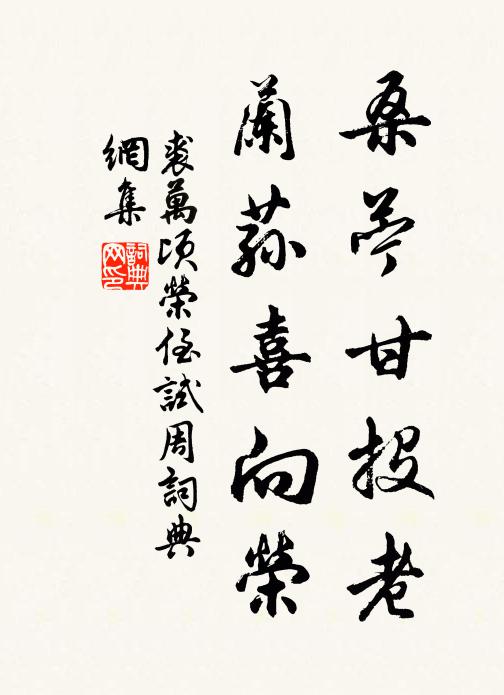 桑苧甘投老
蘭蓀喜向榮
裘萬頃榮侄試周詞典
網集
詞典
网印